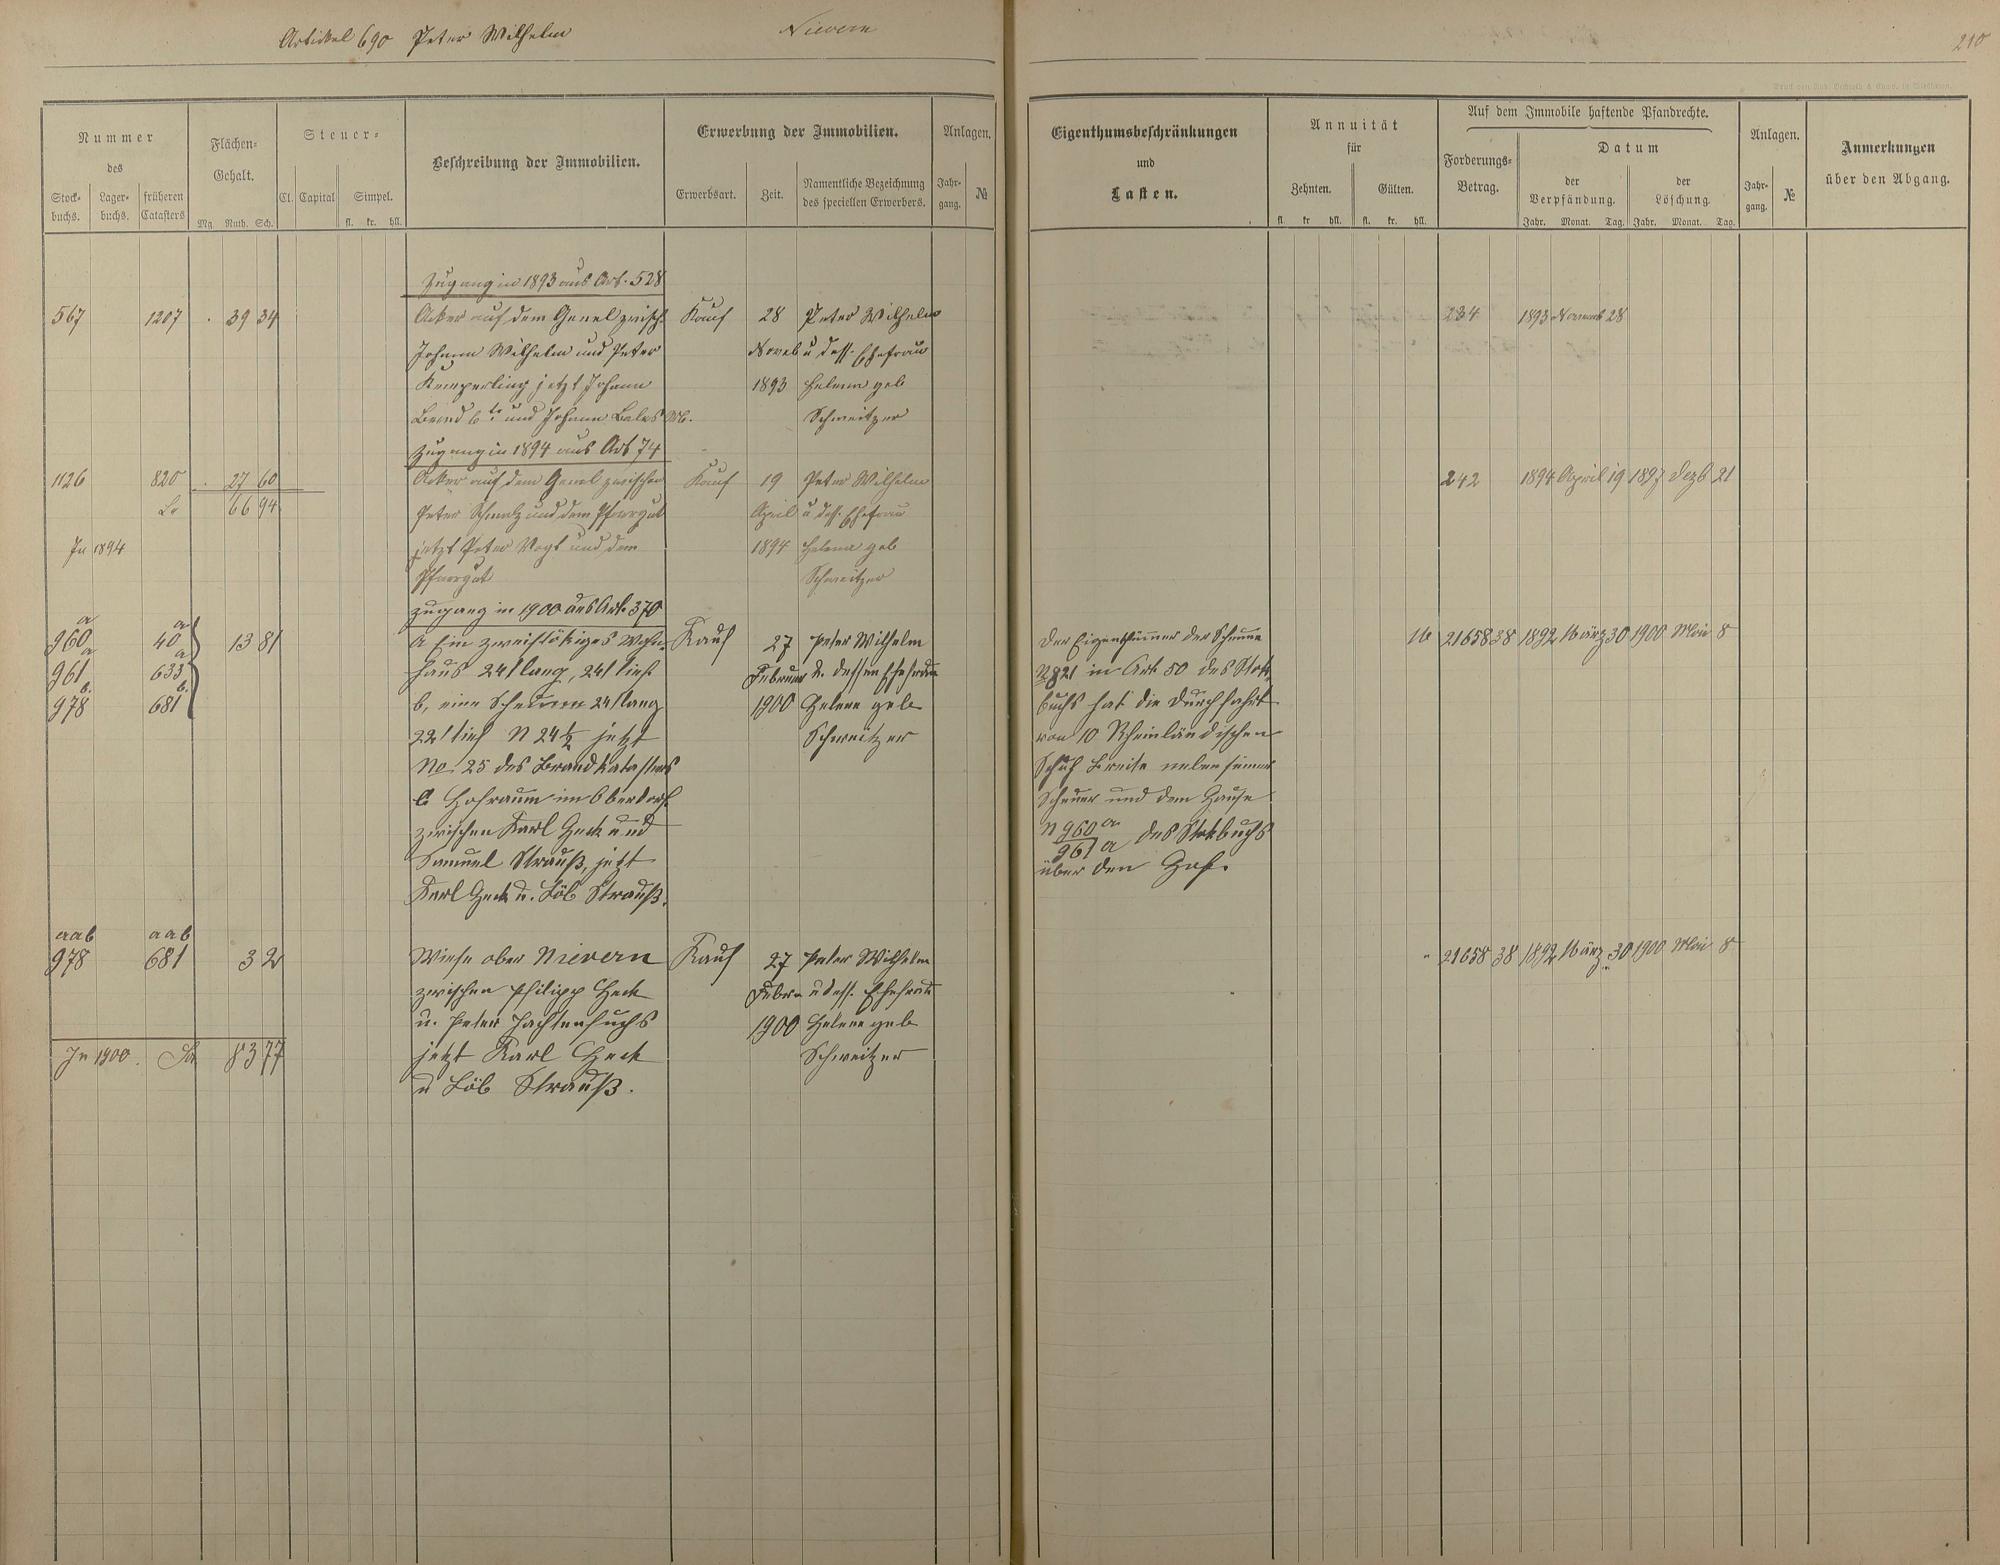 Artikel 690 Peter Wilhelm
Nievern
210
Nummer
des
Stock-
buchs.
Lager-
buchs.
früheren
Catasters
Flächen-
Gehalt.
Mg. Ruth. Sch.
Steuer-
Cl. Capital Simpel.
fl. kr. hll.
Beschreibung der Immobilien.
Erwerbung der Immobilien.
Erwerbsart. Zeit.
Namentliche Bezeichnung
des speciellen Erwerbers.
Anlagen.
Jahr-
gang.
№
Eigenthumsbeschränkungen
und
Lasten.
Annuität
für
Zehnten. Gülten.
fl. kr. hll. fl. kr. hll.
Auf dem Immobile haftende Pfandrechte.
Forderungs-
Betrag.
Datum
der
Verpfändung.
Jahr. Monat. Tag.
der
Löschung
Jahr. Monat. Tag.
Anlagen.
Jahr-
gang.
№
Anmerkungen
über den Abgang.
Zugang in 1893 aus Art. 528
567 1207 39 34 Acker auf dem Genel zwisch. Kauf 28 Peter Wilhelm 234 1893 Novemb 28
Johann Wilhelm und Peter Noveb u dess. Ehefrau
Kemperling jetzt Johann 1893 Helena geb
und Johann Schweitzer
Zugang in 1894 aus Art 74
1126 820 27 60 Acker auf dem Genel zwischen Kauf 19 Peter Wilhelm 242 1894 April 19 1897 Dezb 21
66 94 Peter Schmalz und dem Pfarrgut April u dess. Ehefrau
In 1894 jetzt Peter Vogt und dem 1894 Helena geb
Pfarrgut Schweitzer
Zugang in 1900 aus Art. 370
960 a 40 a 13 81 a Ein zweistökiges Wohn- Kauf 27 Peter Wilhelm Der Eigenthümer der Scheune 16 21658 38 1892 März 30 1900 Mai 8
961 a 633 a haus 24' lang, 24' tief Februar u. dessen Ehefrau N 821 in Art 50 des Stok-
978 b. 681 b. b, eine Scheune 24' lang 1900 Helene geb buchs hat die Durchfahrt
22' tief N 24½ jetzt Schweitzer von 10 Rheinländischen
No. 25 des Brandkatasters Schuh Breite neben seiner
c Hofraum im Oberdorf Scheuer und dem Hause
zwischen Karl Heck und N 960 a / 961 a des Stokbuchs
Samuel Strauß, jetzt über den Hof.
Karl Heck u. Löb Strauß.
aab aab
978 681 32 Wiese ober Nievern Kauf 27 Peter Wilhelm " 21658 38 1892 März 30 1900 Mai 8
zwischen Philipp Heck Februar u dess. Ehefrau
u. Peter 1900 Helene geb
In 1900. Sa 83 77 jetzt Karl Heck Schweitzer
u Löb Strauß.